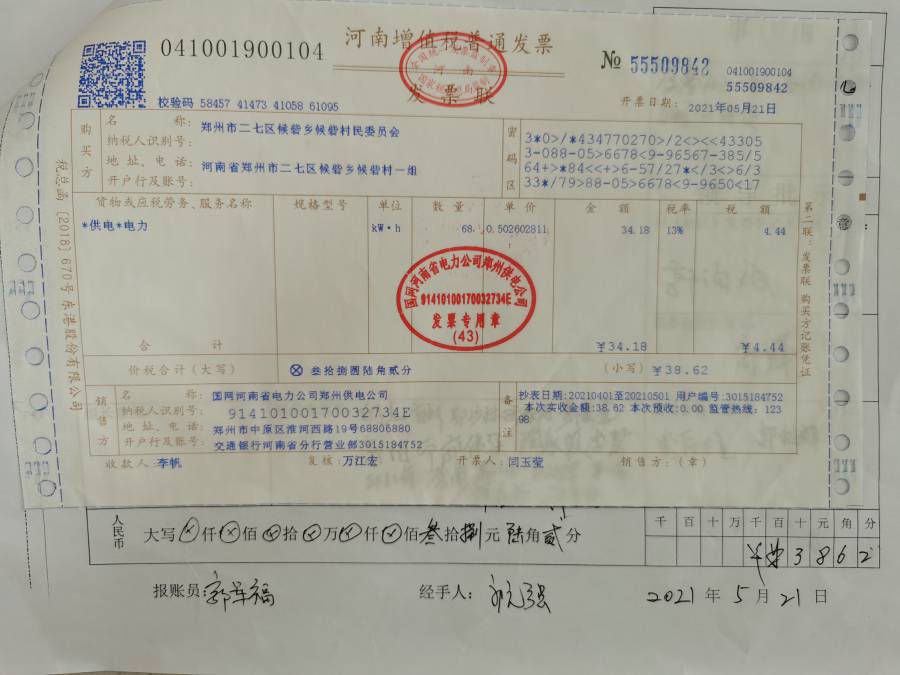 041001900104
河南增值税普通发票
发票联
№ 55509842
041001900104
55509842
校验码 58457 41473 41058 61095
开票日期: 2021年05月21日
购买方
名 称: 郑州市二七区候砦乡候砦村民委员会
纳税人识别号:
地址、电话: 河南省郑州市二七区候砦乡候砦村一组
开户行及账号:
密码区
3*0>/*434770270>/2<><<43305
3-088-05>6678<9-96567-385/5
64+>*84<<+>6-57/27*</3<>6/3
33*/79>88-05>6678<9-9650<17
货物或应税劳务、服务名称 规格型号 单位 数量 单价 金额 税率 税额
*供电*电力 kW·h 68 0.502602811 34.18 13% 4.44
国网河南省电力公司郑州供电公司
91410100170032734E
发票专用章
(43)
合计 ¥34.18 ¥4.44
价税合计(大写) ⊗ 叁拾捌圆陆角贰分 (小写) ¥38.62
销售方
名 称: 国网河南省电力公司郑州供电公司
纳税人识别号: 91410100170032734E
地址、电话: 郑州市中原区淮河西路19号68806880
开户行及账号: 交通银行河南省分行营业部3015184752
备注
抄表日期:20210401至20210501 用户编号:3015184752
本次实收金额:38.62 本次预收:0.00 监管热线: 123
98
收款人: 李帆 复核: 万江宏 开票人: 闫玉莹 销售方:(章)
税总函〔2018〕670号 东港股份有限公司
第二联:发票联 购买方记账凭证
人民币 大写 ⊗仟⊗佰⊗拾⊗万⊗仟⊗佰叁拾捌元陆角贰分
千 百 十 万 千 百 十 元 角 分
3 8 6 2
报账员: 经手人: 2021年5月21日